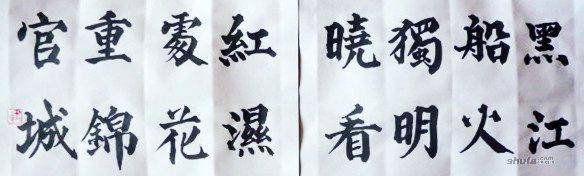 黑江
船火
獨明
曉看
紅濕
處花
重錦
官城
shufa.com